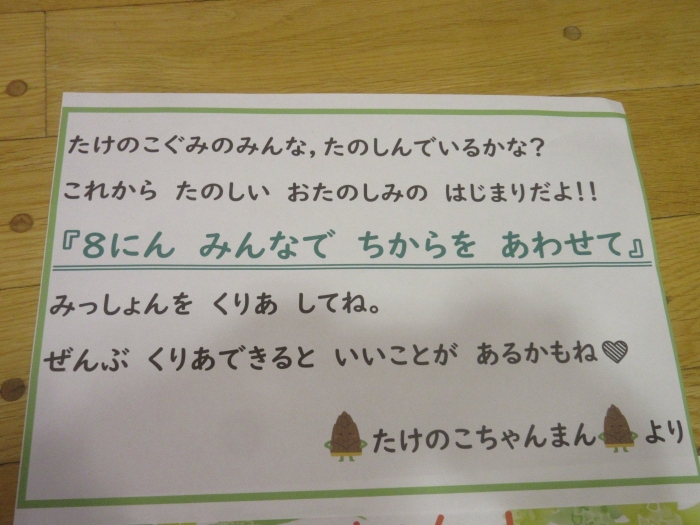 たけのこぐみのみんな,たのしんでいるかな?
これから たのしい おたのしみの はじまりだよ!!
『8にん みんなで ちからを あわせて』
みっしょんを くりあ してね。
ぜんぶ くりあできると いいことが あるかもね♡
たけのこちゃんまん より